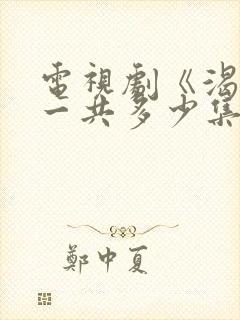 電視劇《渴
一共多少集
鄭中夏